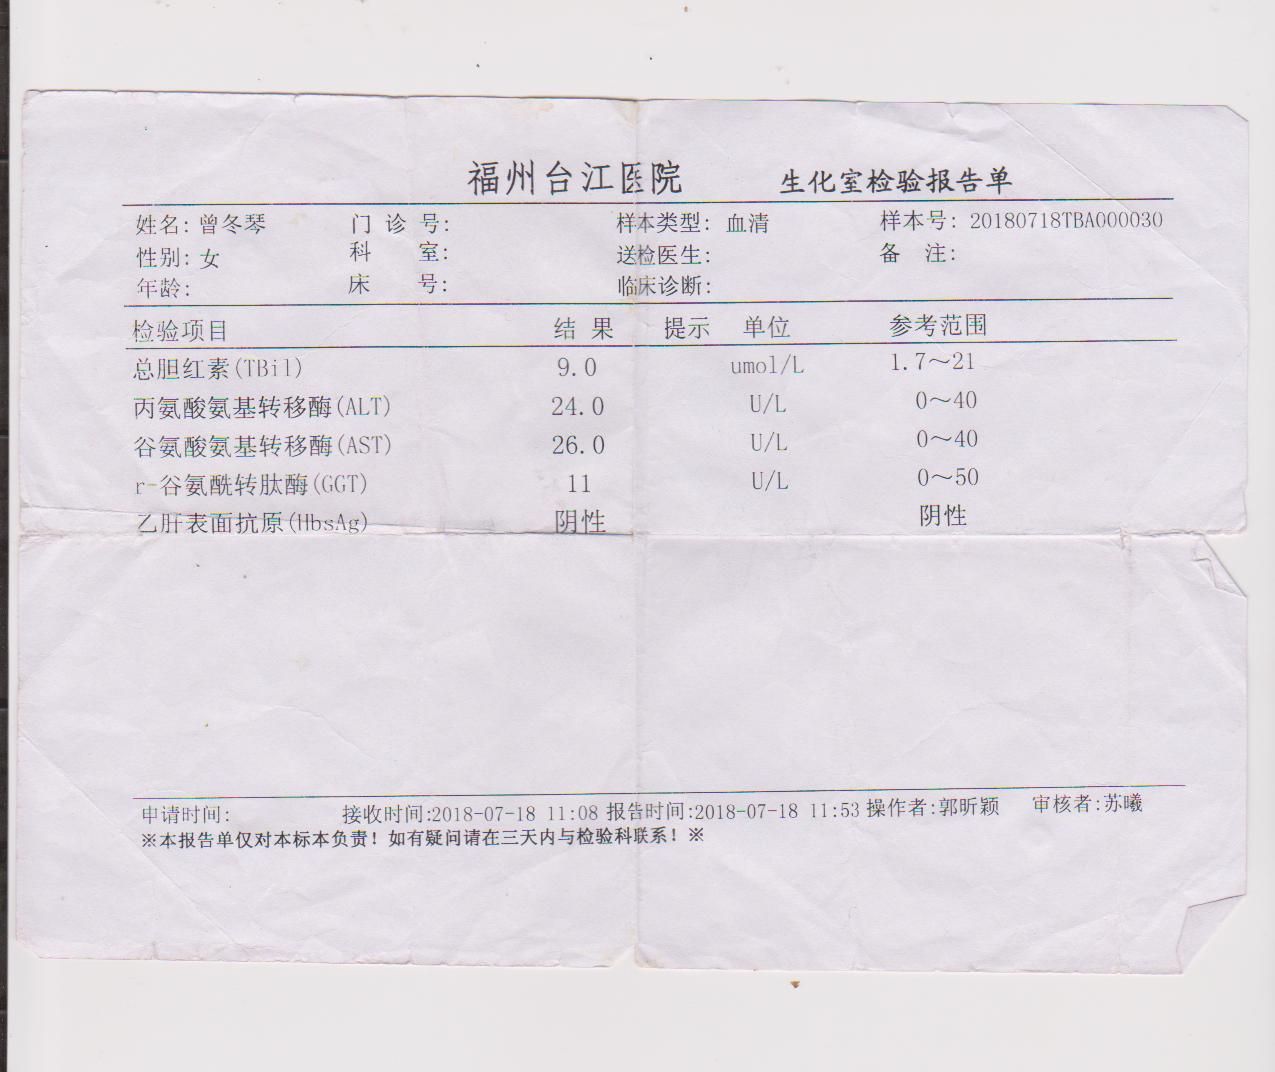 福州台江医院 生化室检验报告单
姓名: 曾冬琴 门 诊 号: 样本类型: 血清 样本号: 20180718TBA000030
性别: 女 科 室: 送检医生: 备 注:
年龄: 床 号: 临床诊断:
检验项目 结 果 提示 单位 参考范围
总胆红素(TBil) 9.0 umol/L 1.7～21
丙氨酸氨基转移酶(ALT) 24.0 U/L 0～40
谷氨酸氨基转移酶(AST) 26.0 U/L 0～40
r-谷氨酰转肽酶(GGT) 11 U/L 0～50
乙肝表面抗原(HbsAg) 阴性 阴性
申请时间: 接收时间:2018-07-18 11:08 报告时间:2018-07-18 11:53 操作者:郭昕颖 审核者:苏曦
※本报告单仅对本标本负责！如有疑问请在三天内与检验科联系！※